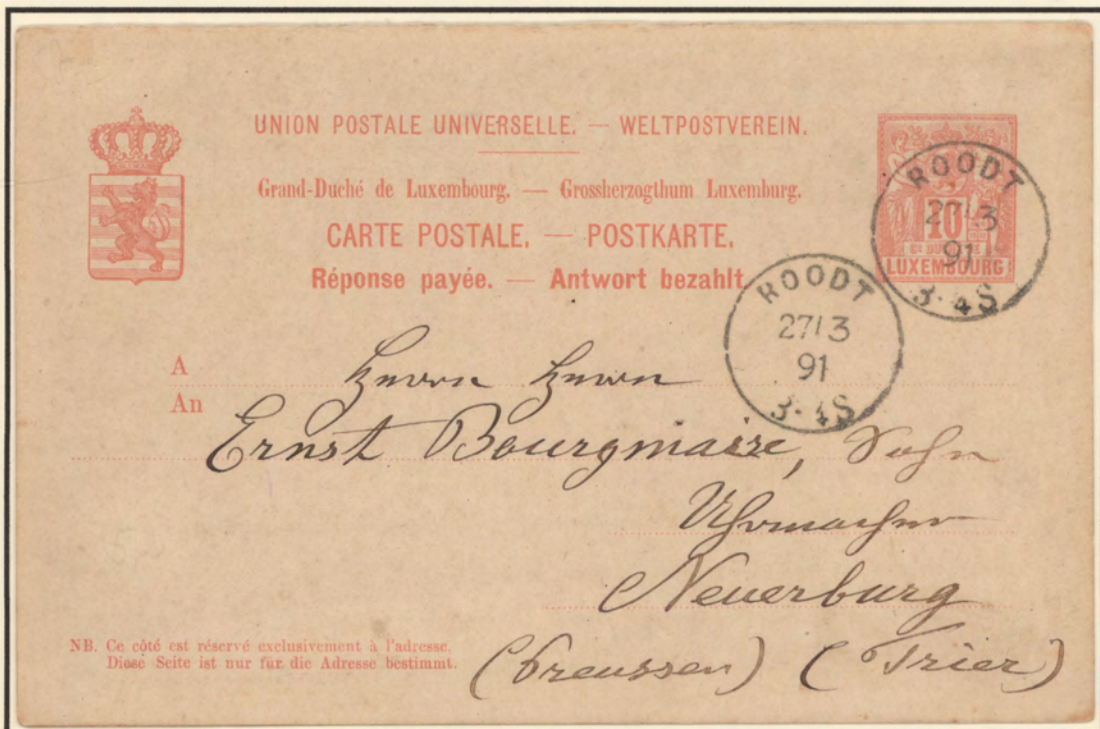 UNION POSTALE UNIVERSELLE. — WELTPOSTVEREIN.
Grand-Duché de Luxembourg. — Grossherzogthum Luxemburg.
CARTE POSTALE. — POSTKARTE.
Réponse payée. — Antwort bezahlt.
10
LUXEMBOURG
ROODT
27/3
91
3-4S
ROODT
27/3
91
3-4S
A
An
Herrn Herrn
Ernst Bourgmaire, Sohn
Uhrmacher
Neuerburg
(Preussen) (Trier)
NB. Ce côté est réservé exclusivement à l'adresse.
Diese Seite ist nur für die Adresse bestimmt.